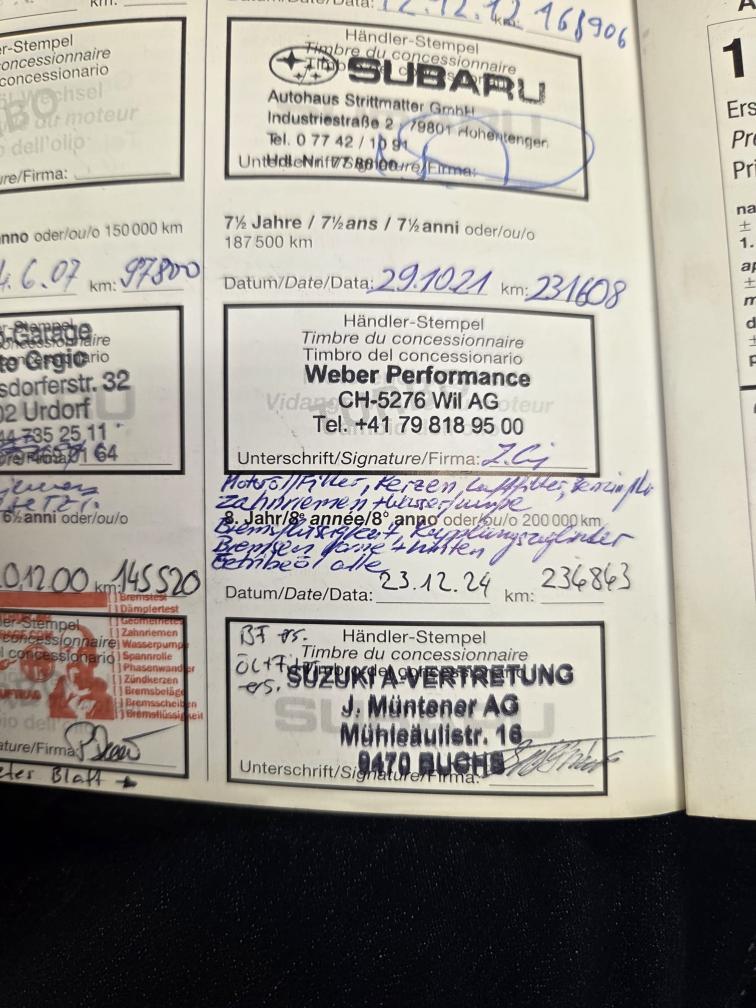 km:
r-Stempel
concessionnaire
concessionario
ure/Firma:
nno oder/ou/o 150 000 km
6.07 km: 97800
Garage
to Grgic
sdorferstr. 32
02 Urdorf
735 25 11
64
6½anni oder/ou/o
0.12.00 km: 145520
Bremstest
Dämpfertest
Geometrietest
Zahnriemen
Wasserpumpe
Spannrolle
Phasenwandler
Zündkerzen
Bremsbeläge
Bremsscheiben
Bremsflüssigkeit
er-Stempel
concessionnaire
concessionario
ature/Firma:
Blatt →
Datum/Date/Data: 12.12.12 km: 168906
Händler-Stempel
Timbre du concessionnaire
SUBARU
Autohaus Strittmatter GmbH
Industriestraße 2 79801 Hohentengen
Tel. 0 77 42 /
Unterschrift/Signature/Firma:
7½ Jahre / 7½ans / 7½anni oder/ou/o
187 500 km
Datum/Date/Data: 29.10 21 km: 231608
Händler-Stempel
Timbre du concessionnaire
Timbro del concessionario
Weber Performance
CH-5276 Wil AG
Tel. +41 79 818 95 00
Unterschrift/Signature/Firma:
Motoröl/Filter, Kerzen, Luftfilter,
Zahnriemen + Wasserpumpe
8. Jahr/8e année/8° anno oder/ou/o 200 000 km
Bremsflüssigkeit Kupplungszylinder
Bremsen vorne + hinten
Getriebeöl alle
Datum/Date/Data: 23.12.24 km: 234843
BF ers.
Händler-Stempel
Timbre du concessionnaire
ers.
SUZUKI A-VERTRETUNG
J. Müntener AG
Mühleäulistr. 16
9470 BUCHS
Unterschrift/Signature/Firma:
1
Ers
Pr
Pri